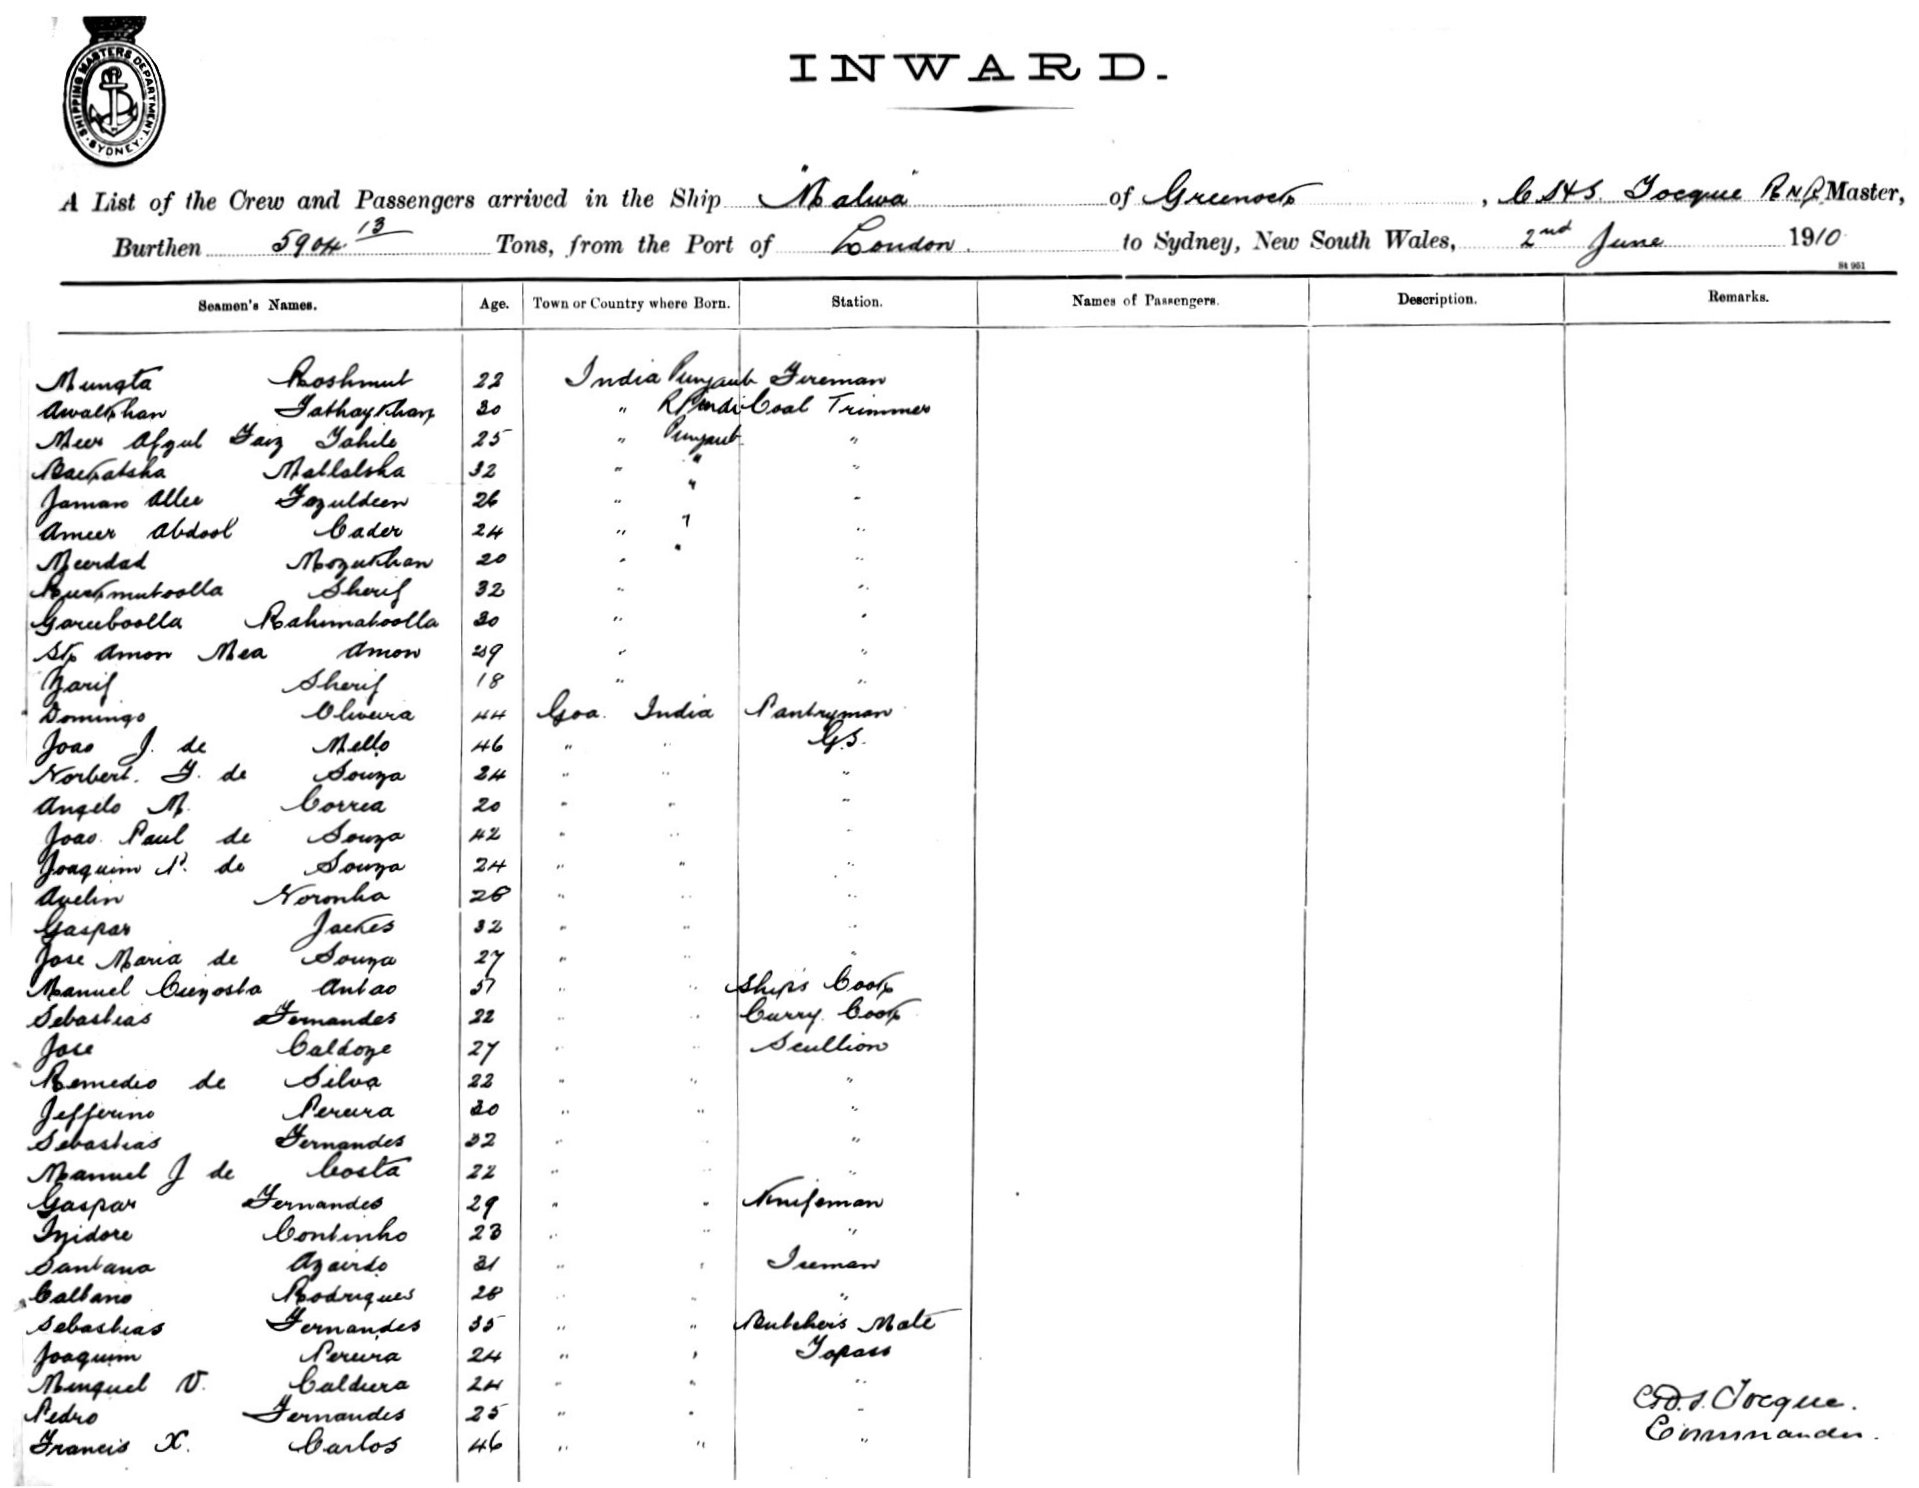 SHIPPING MASTERS DEPARTMENT. SYDNEY.
INWARD.
A List of the Crew and Passengers arrived in the Ship "Malwa" of Greenock, C D & S. Tocque R N R Master,
Burthen 5904 13 Tons, from the Port of London. to Sydney, New South Wales, 2nd June 1910
St 951
Seamen's Names. Age. Town or Country where Born. Station. Names of Passengers. Description. Remarks.
Mungta Roshmut 22 India Punjaub Fireman
Awalkhan Fathaykhan 30 " R Pindi Coal Trimmer
Meer Afzul Faiz 25 " Punjaub "
32 " " "
Jaman Allee Fazuldeen 26 " " "
Ameer Abdool Cader 24 " " "
Meerdad Mozukhan 20 " " "
Ruckmutoolla Sherif 32 " "
Gareeboolla Rahimatoolla 30 " "
Amon Mea Amon 29 " "
Zarif Sherif 18 " "
Domingo Oliveira 44 Goa. India Pantryman
Joao J. de Mello 46 " " G.S.
Norbert. F. de Souza 24 " " "
Angelo M. Correa 20 " " "
Joao. Paul de Souza 42 " " "
Joaquim P. de Souza 24 " " "
Avelin Noronha 28 " " "
Gaspar Jackes 32 " " "
Jose Maria de Souza 27 " " "
Manuel Antao 57 " " Ships Cook
Sebastias Fernandes 22 " " Curry Cook
Jose Caldoze 27 " " Scullion
Remedio de Silva 22 " " "
Jefferino Pereira 30 " " "
Sebastias Fernandes 32 " " "
Manuel J de Costa 22 " " "
Gaspar Fernandes 29 " " Knifeman
Izidore Continho 23 " " "
Santana Azavedo 31 " " Iceman
Caltano Rodrigues 28 " " "
Sebastias Fernandes 35 " " Butcher's Mate
Joaquim Pereira 24 " " Topass
Minguel V. Caldeira 24 " " "
Pedro Fernandes 25 " " "
Francis X. Carlos 46 " " "
C.D.S. Tocque.
Commander.